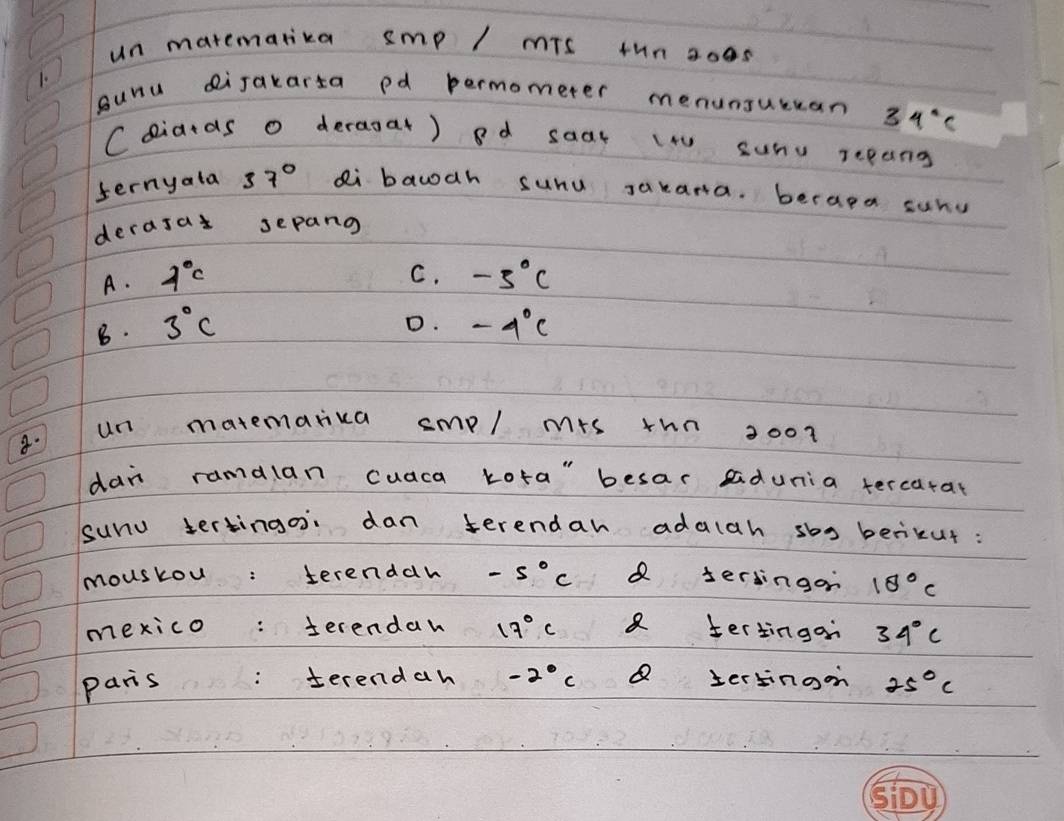 un matematika smp / mTs thn 2005
1. suhu dijakarta pd termometer menunjukkan 34°c
(diatas 0 derajat) pd saat itu suhu jepang
ternyata 37° di bawah suhu jakarta. berapa suhu
derajat jepang
A. 4°c C. -3°C
B. 3°C D. -4°C
2. un matematika smp / mts thn 2007
dari ramalan cuaca kota" besar didunia tercatat
suhu tertinggi dan terendah adalah sbg berikut :
mouskou : terendah -5°c & tertinggi 18°c
mexico : terendah 17°c & tertinggi 34°c
paris : terendah -2°c & tertinggi 25°c
SiDU